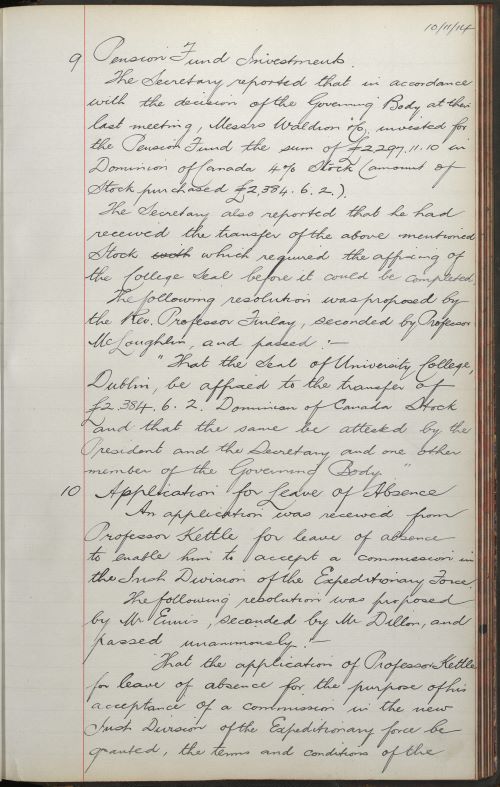 10/11/14
9 Pension Fund Investments.
The Secretary reported that in accordance
with the decision of the Governing Body at their
last meeting, Messrs Waldron & Co. invested for
the Pension Fund the sum of £2297.11.10 in
Dominion of Canada 4% Stock (amount of
Stock purchased £2,384.6.2.).
The Secretary also reported that he had
received the transfer of the above mentioned
Stock with which required the affixing of
the College Seal before it could be completed
The following resolution was proposed by
the Rev. Professor Finlay, seconded by Professor
McLoughlin, and passed :—
"That the Seal of University College,
Dublin, be affixed to the transfer of
£2,384.6.2. Dominion of Canada Stock
and that the same be attested by the
President and the Secretary and one other
member of the Governing Body."
10 Application for Leave of Absence
An application was received from
Professor Kettle for leave of absence
to enable him to accept a commission in
the Irish Division of the Expeditionary Force.
The following resolution was proposed
by Mr Ennis, seconded by Mr Dillon, and
passed unanimously :—
"That the application of Professor Kettle
for leave of absence for the purpose of his
acceptance of a commission in the new
Irish Division of the Expeditionary force be
granted, the terms and conditions of the